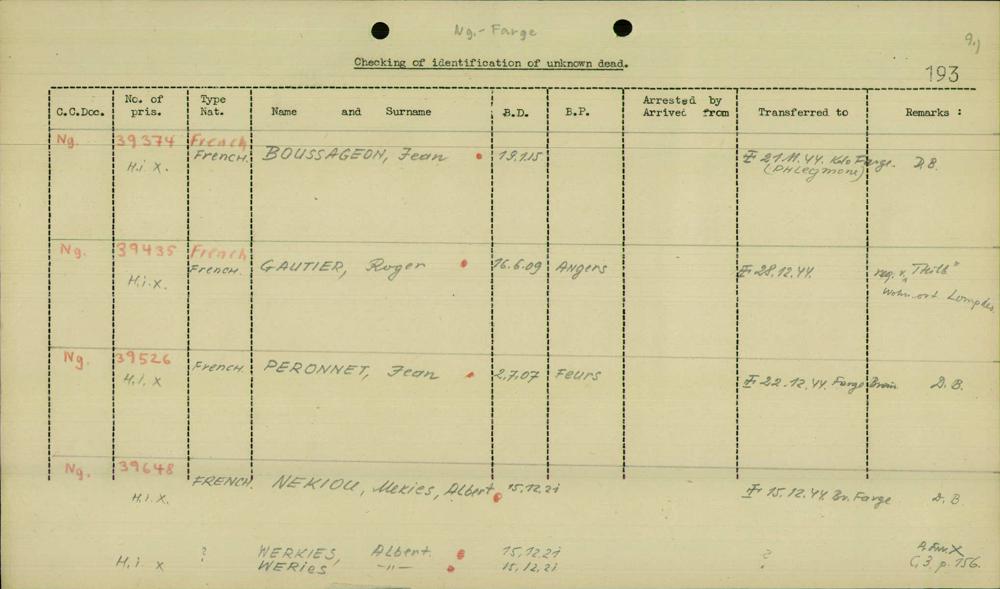 Ng.- Farge
9.)
Checking of identification of unknown dead.
193
C.C.Doc. No. of pris. Type Nat. Name and Surname B.D. B.P. Arrested by Arrived from Transferred to Remarks :
Ng. 39374 French
H.i. X. French. BOUSSAGEON, Jean 19.1.15 21.11.44. Kdo Farge. D.B.
(PHLegmone)
Ng. 39435 French
H.i.X. French. GAUTIER, Roger 16.6.09 Angers 28.12.44. reg. v. "Thilb"
Wohnort
Ng. 39526
H.i. X French. PERONNET, Jean 2.7.07 Feurs 22.12.44 Farge D.B.
Ng. 39648
H.i.X. FRENCH. NEKIOU, Mekies, Albert 15.12.21 15.12.44 Br. Farge D.B
? WERKIES, Albert 15.12.21 ?
H.i. X WERies -"- 15.12.21 C,3. p. 156.